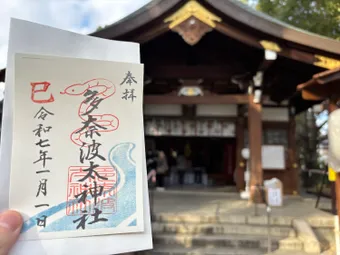 奉拝
多奈波太神社
巳
令和七年一月一日